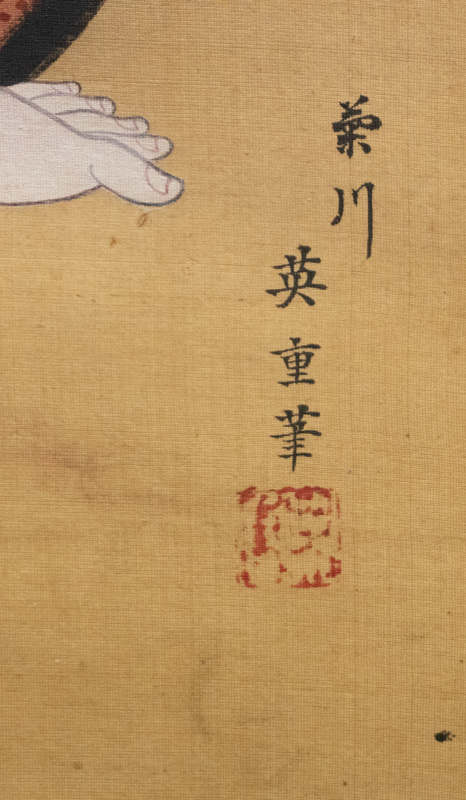 菊川
英重筆